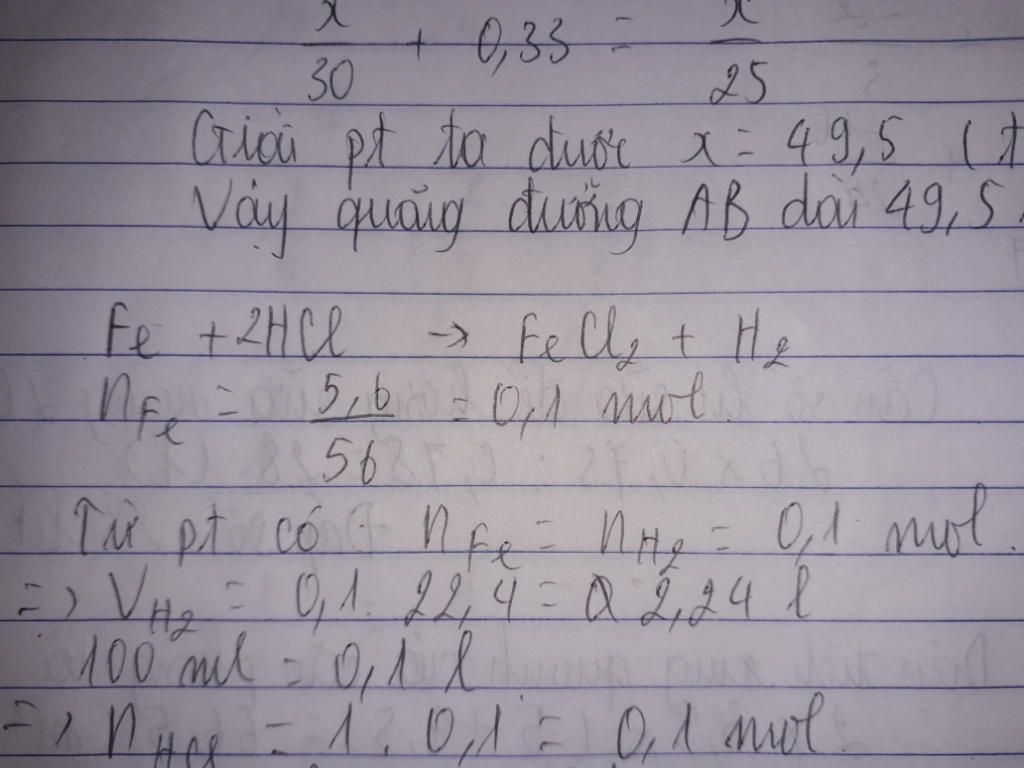 x/30 + 0,33 = x/25
Giải pt ta được x = 49,5 (t
Vậy quãng đường AB dài 49,5
Fe + 2HCl → FeCl₂ + H₂
n_Fe = 5,6/56 = 0,1 mol.
Từ pt có n_Fe = n_H₂ = 0,1 mol.
=> V_H₂ = 0,1. 22,4 = 2,24 l
100 ml = 0,1 l
=> n_HCl = 1. 0,1 = 0,1 mol.